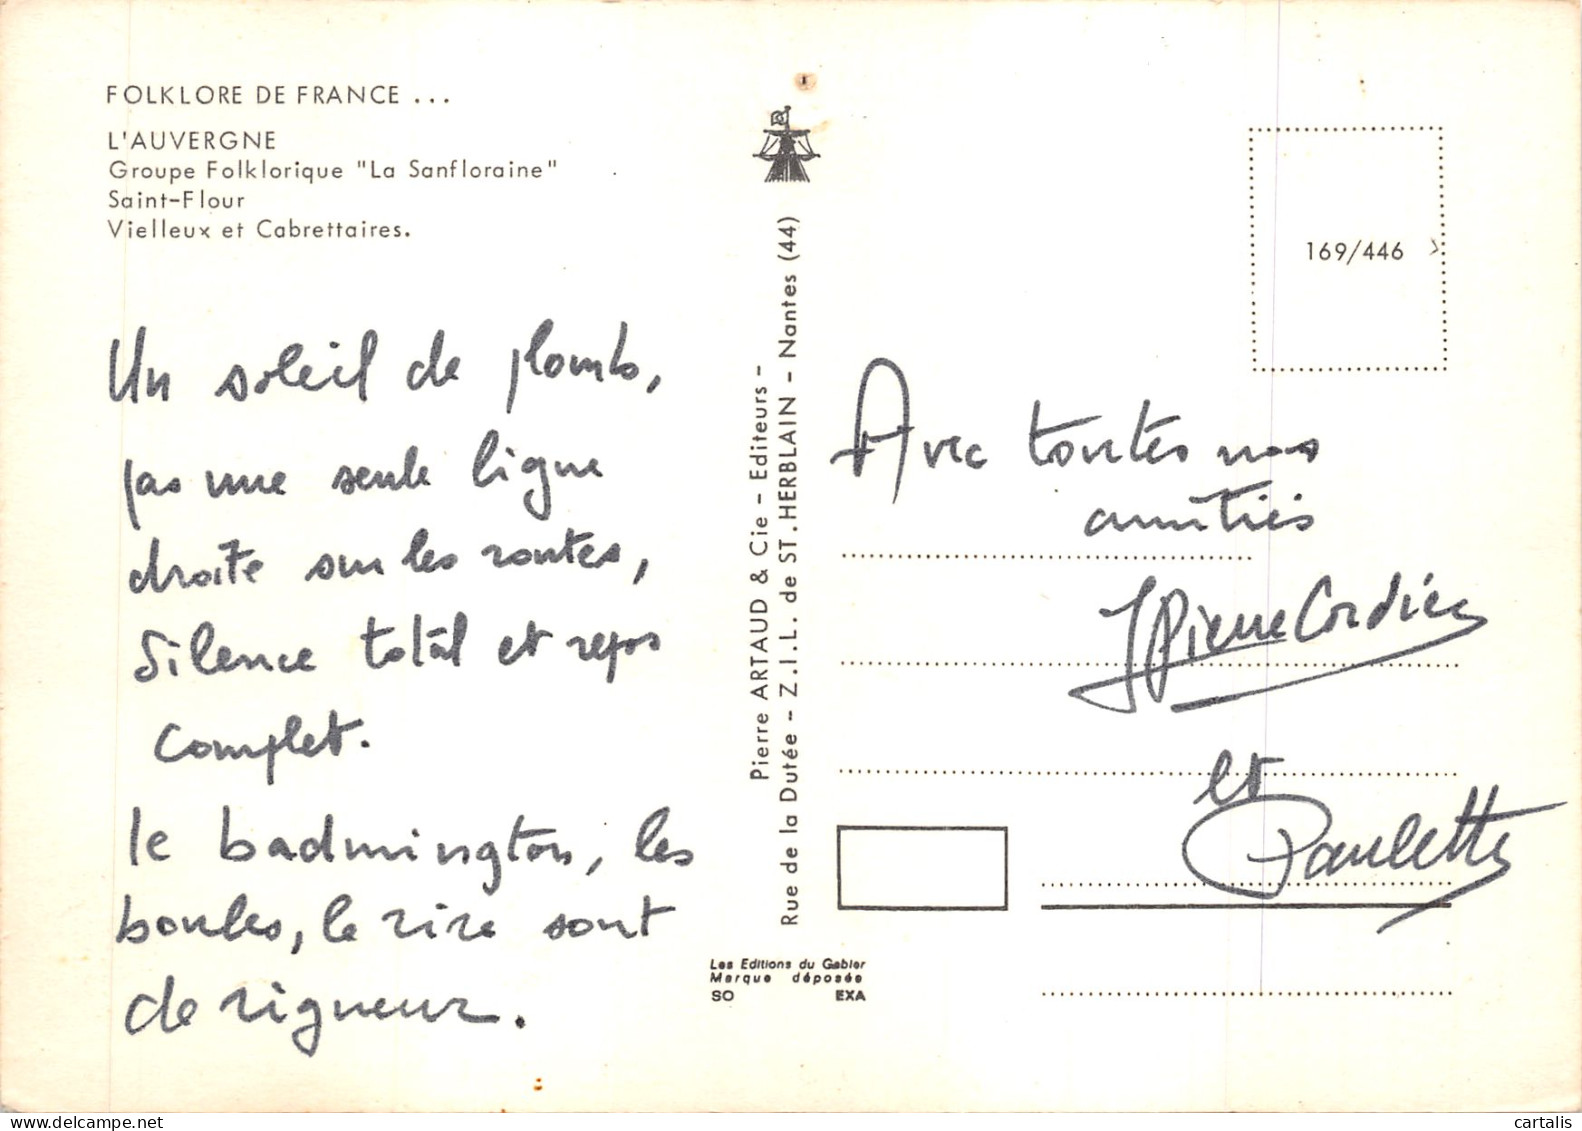 FOLKLORE DE FRANCE ...
L'AUVERGNE
Groupe Folklorique "La Sanfloraine"
Saint-Flour
Vielleux et Cabrettaires.
Un soleil de plomb,
pas une seule ligne
droite sur les routes,
Silence total et repos
complet.
le badmington, les
boules, le rire sont
de rigueur.
Pierre ARTAUD & Cie - Editeurs -
Rue de la Dutée - Z.I.L. de ST.HERBLAIN - Nantes (44)
Les Editions du Gabier
Marque déposée
SO EXA
169/446
Avec toutes nos
amitiés
JPierre Cordier
et
Paulette
cartalis